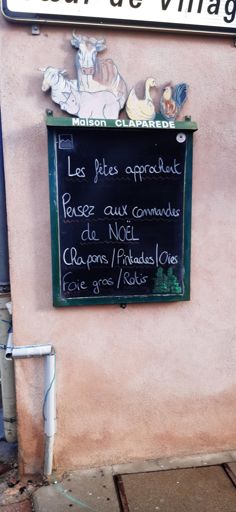 œur de Villag
Maison CLAPAREDE
Les fêtes approchent
Pensez aux commandes
de NOËL
Chapons/Pintades/Oies
Foie gras/Rotis